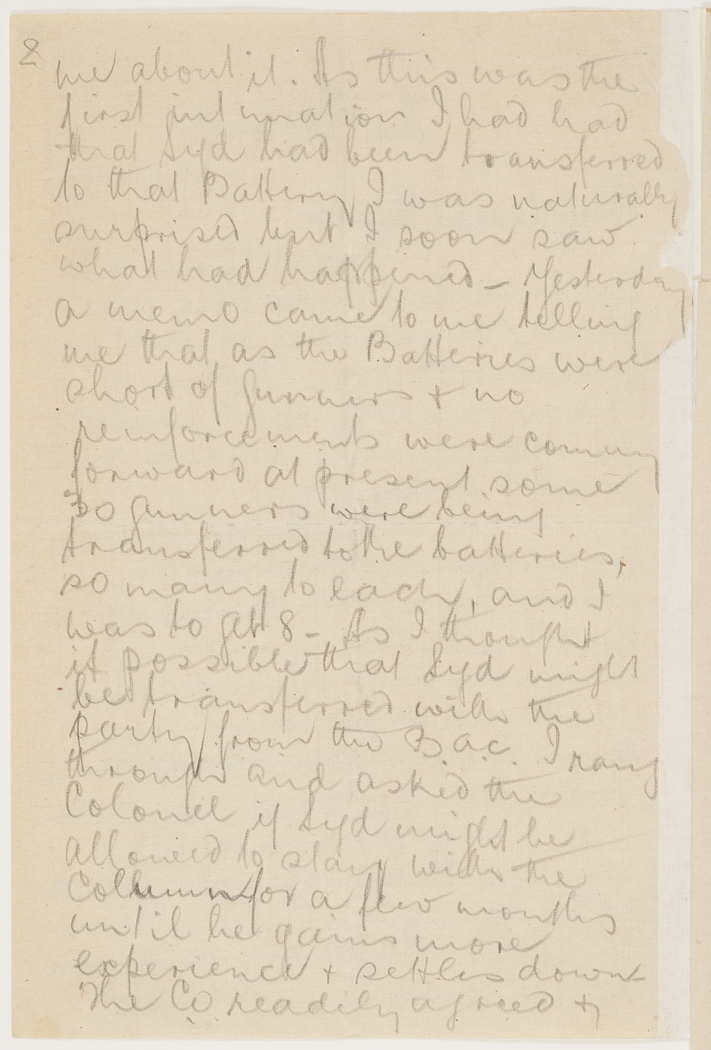 8
me about it. As this was the
first intimation I had had
that Syd had been transferred
to that Battery I was naturally
surprised but I soon saw
what had happened – Yesterday
a memo came to me telling
me that as the Batteries were
short of gunners & no
reinforcements were coming
forward at present some
30 gunners were being
transferred to the batteries,
so many to each, and I
was to get 8 – As I thought
it possible that Syd might
be transferred with the
party from the B.a.c. I rang
through and asked the
Colonel if Syd might be
allowed to stay with the
Column for a few months
until he gains more
experience & settles down –
The CO readily agreed &